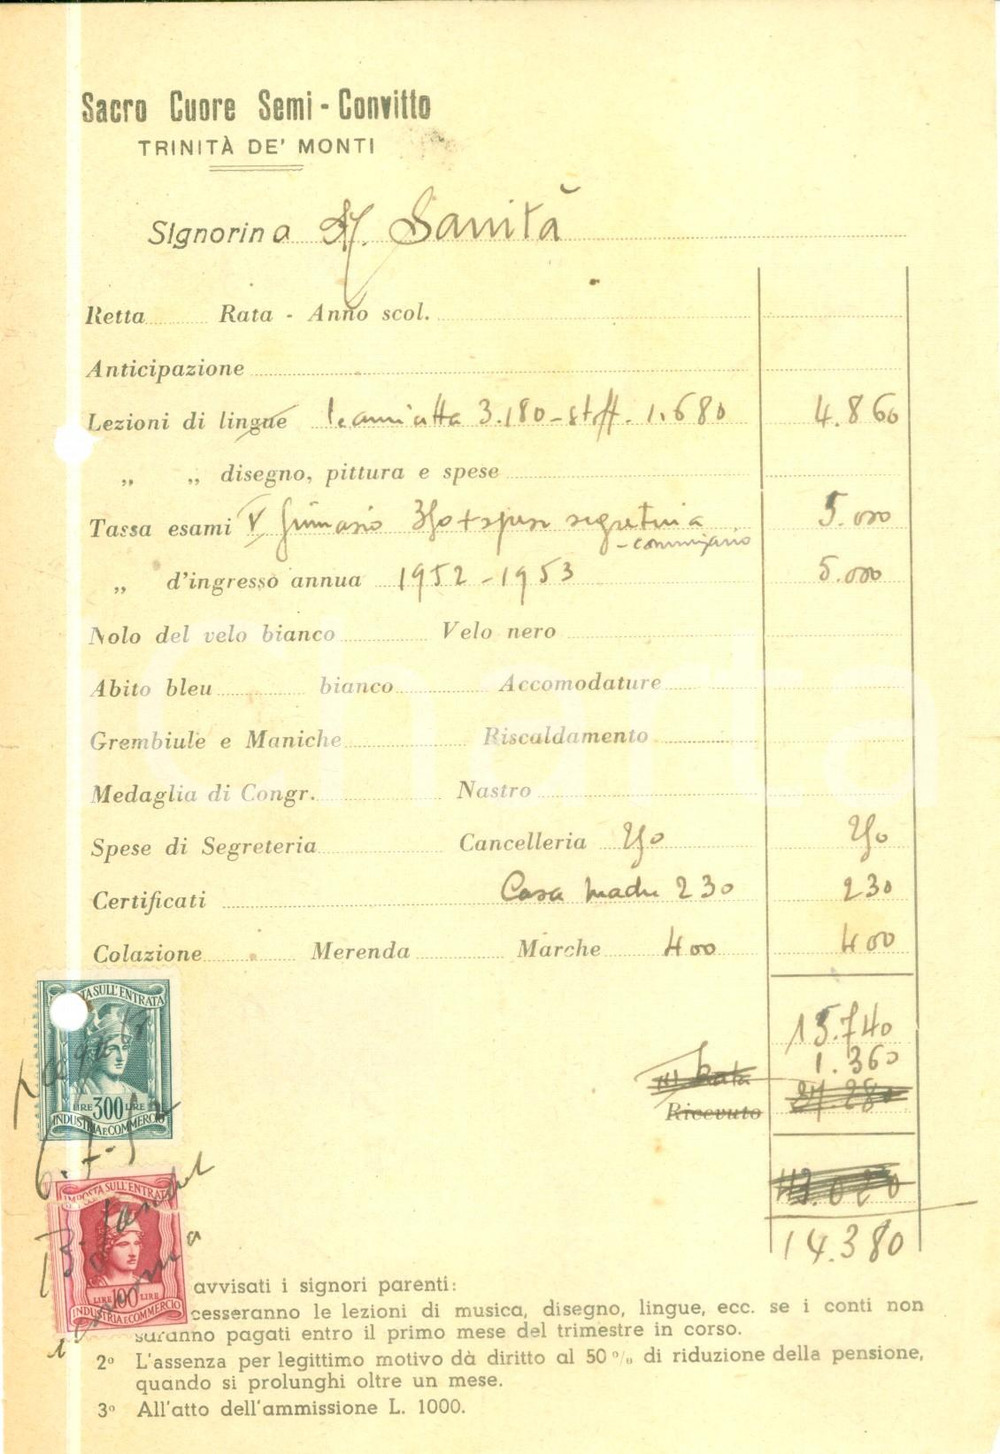 Sacro Cuore Semi - Convitto
TRINITÀ DE' MONTI
Signorina M. Sanità
Retta Rata - Anno scol.
Anticipazione
Lezioni di lingue 3.180 - stff. 1.680 4.860
„ „ disegno, pittura e spese
Tassa esami V Ginnasio 350 + spese segreteria 5.000
- commissario
„ d'ingresso annua 1952 - 1953 5.000
Nolo del velo bianco Velo nero
Abito bleu bianco Accomodature
Grembiule e Maniche Riscaldamento
Medaglia di Congr. Nastro
Spese di Segreteria Cancelleria 250 250
Certificati Casa Madre 230 230
Colazione Merenda Marche 400 400
15.740
1.360
Rata 27.280
Ricevuto
14.380
IMPOSTA SULL'ENTRATA
LIRE 300 LIRE
INDUSTRIA E COMMERCIO
6-7-52
IMPOSTA SULL'ENTRATA
LIRE 100 LIRE
INDUSTRIA E COMMERCIO
avvisati i signori parenti:
cesseranno le lezioni di musica, disegno, lingue, ecc. se i conti non
saranno pagati entro il primo mese del trimestre in corso.
2° L'assenza per legittimo motivo dà diritto al 50 % di riduzione della pensione,
quando si prolunghi oltre un mese.
3° All'atto dell'ammissione L. 1000.